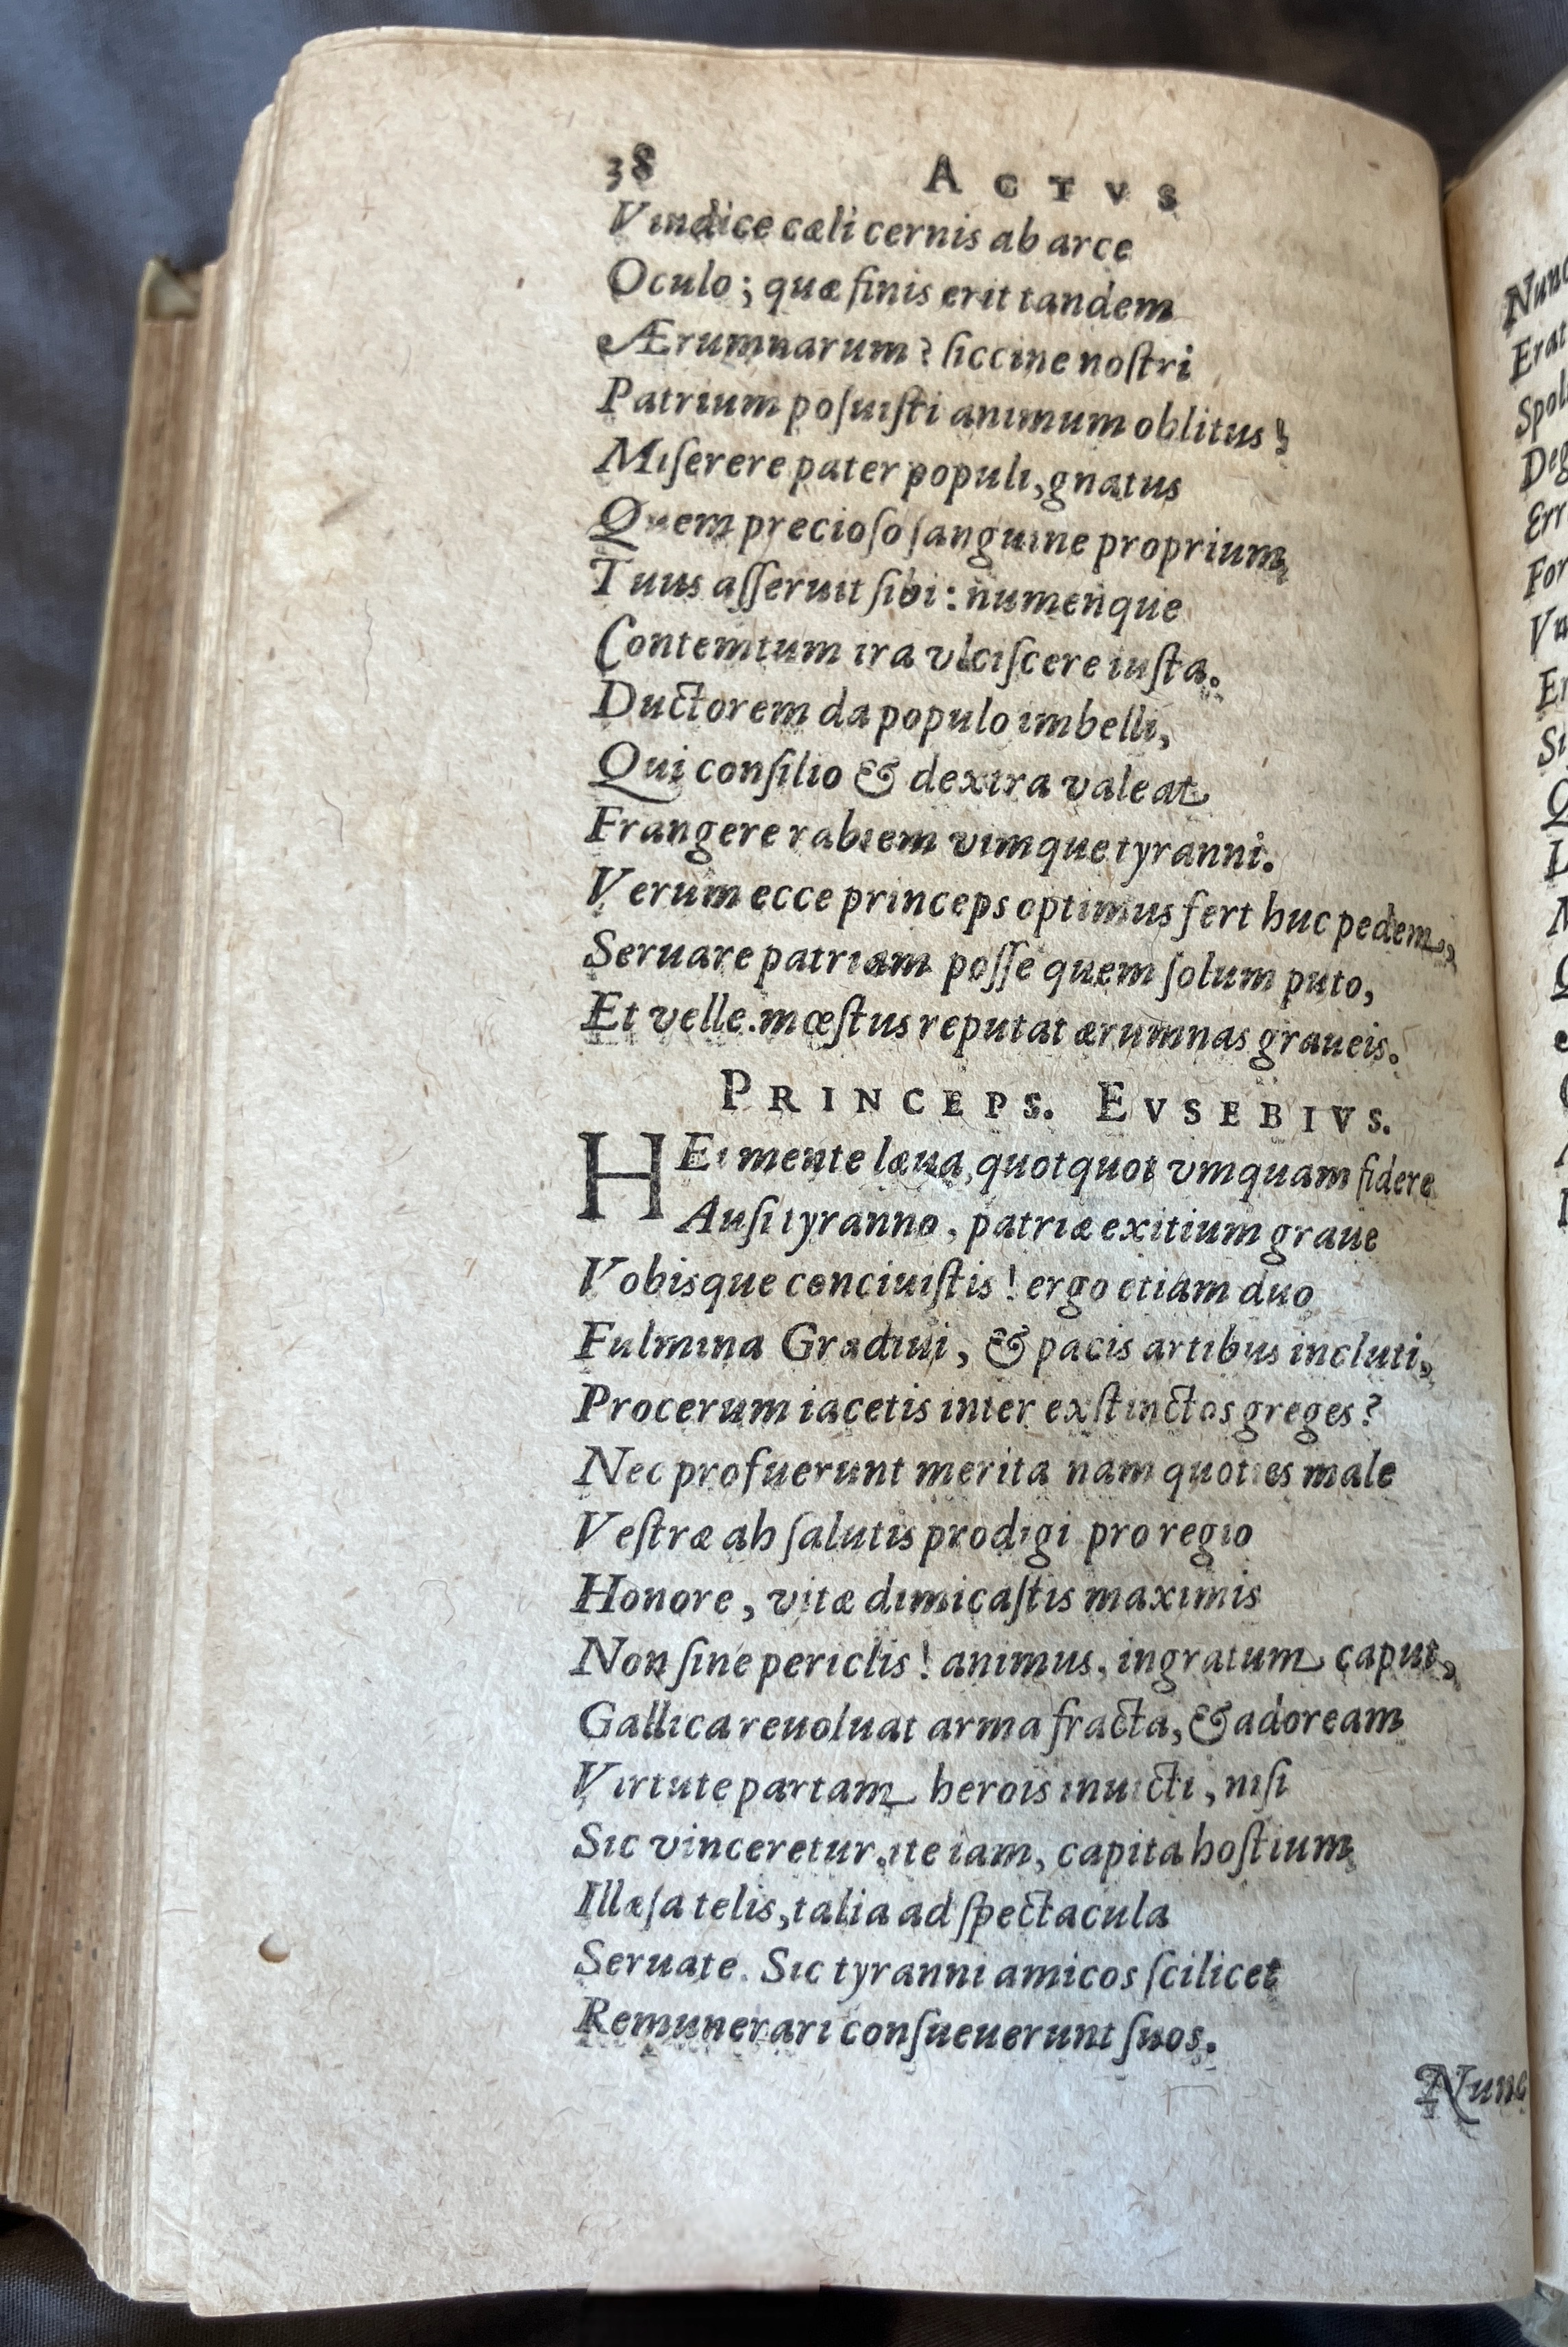 38 ACTVS
Vindice cæli cernis ab arce
Oculo; quæ finis erit tandem
Ærumnarum? siccine nostri
Patrium posuisti animum oblitus!
Miserere pater populi, gnatus
Quem precioso sanguine proprium
Tuus asseruit sibi: numenque
Contemtum ira vlciscere iusta.
Ductorem da populo imbelli,
Qui consilio & dextra valeat
Frangere rabiem vimque tyranni.
Verum ecce princeps optimus fert huc pedem,
Seruare patriam posse quem solum puto,
Et velle. mœstus reputat ærumnas graueis.
PRINCEPS. EVSEBIVS.
HEi mente læua, quotquot vmquam fidere
Ausi tyranno, patriæ exitium graue
Vobisque conciuistis! ergo etiam duo
Fulmina Gradiui, & pacis artibus incluti,
Procerum iacetis inter exstinctos greges?
Nec profuerunt merita nam quoties male
Vestræ ah salutis prodigi pro regio
Honore, vitæ dimicastis maximis
Non sine periclis! animus, ingratum caput,
Gallica reuoluat arma fracta, & adoream
Virtute partam herois inuicti, nisi
Sic vinceretur. ite iam, capita hostium
Illæsa telis, talia ad spectacula
Seruate. Sic tyranni amicos scilicet
Remunerari consueuerunt suos.
Nunc
Nunc
Erat
Spol
Deg
Err
For